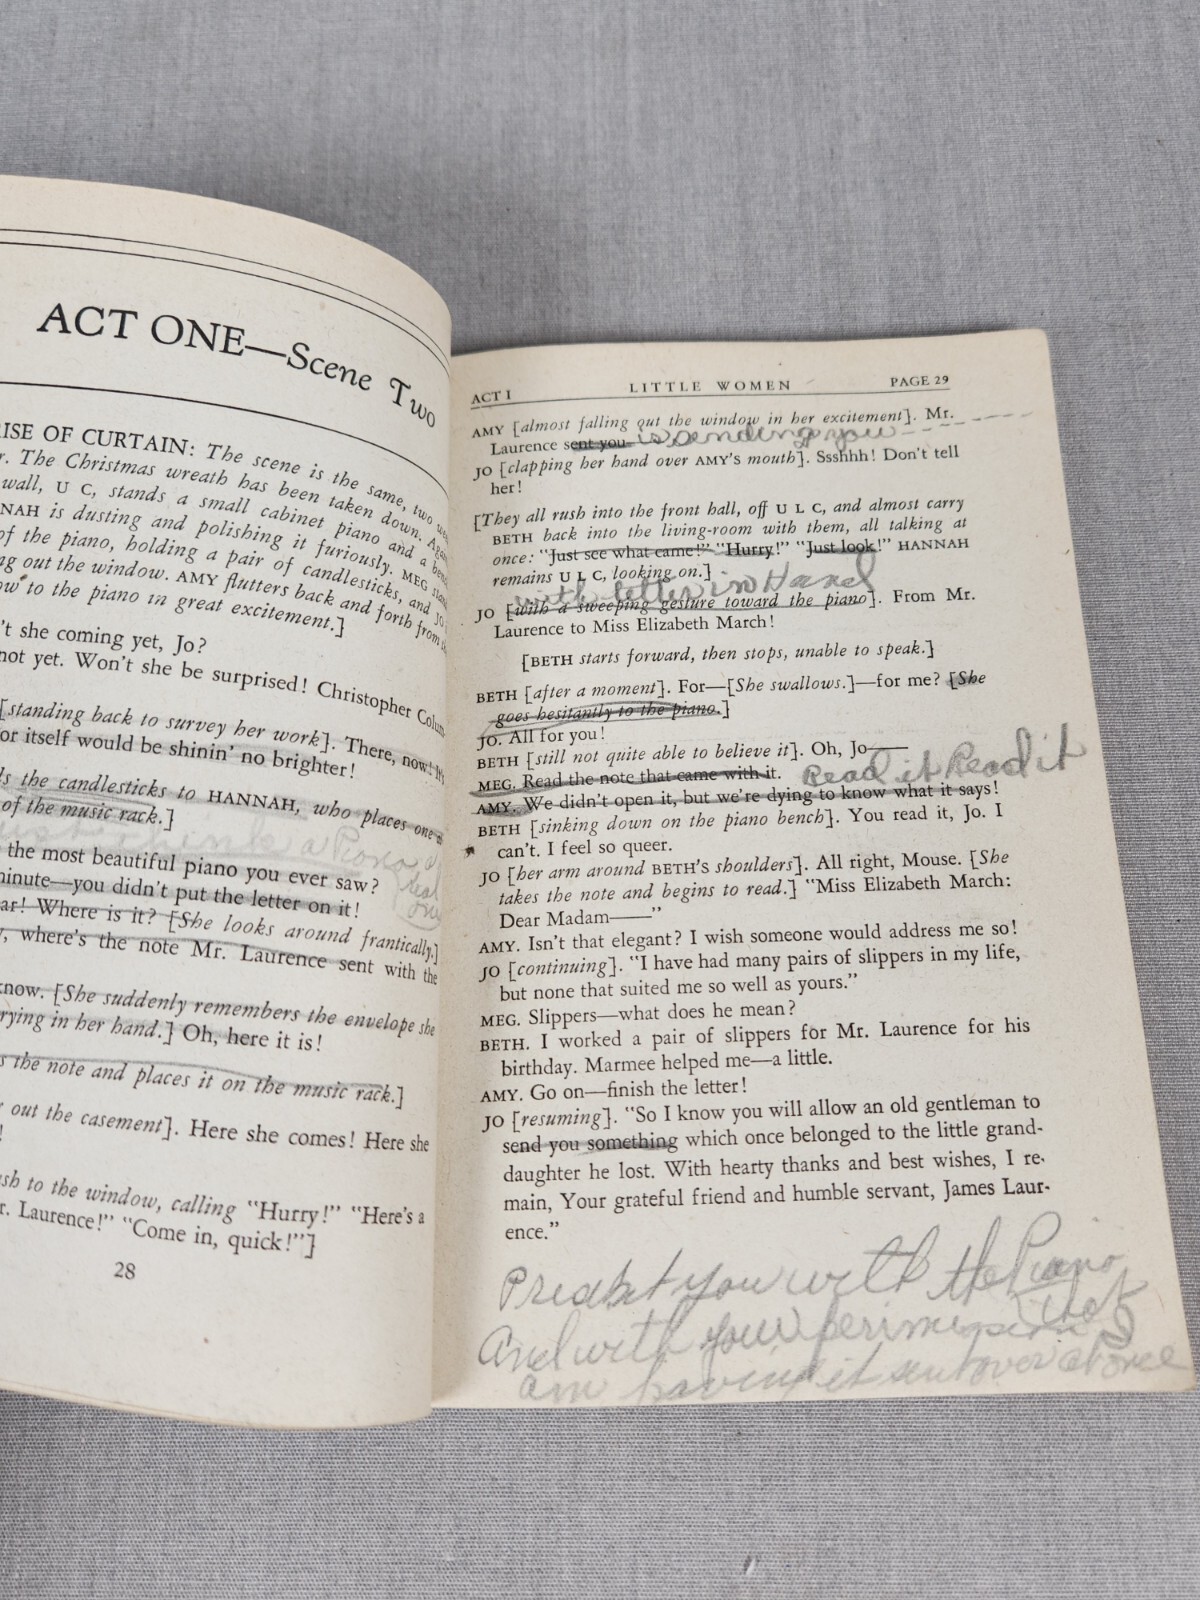 ACT ONE—Scene Two
RISE OF CURTAIN: The scene is the same, two
The Christmas wreath has been taken down.
wall, U C, stands a small cabinet piano and a
is dusting and polishing it furiously. MEG
of the piano, holding a pair of candlesticks, and JO
out the window. AMY flutters back and forth from
to the piano in great excitement.]
she coming yet, Jo?
not yet. Won't she be surprised! Christopher
[standing back to survey her work]. There, now!
itself would be shinin' no brighter!
the candlesticks to HANNAH, who places one
of the music rack.]
a Piano
real
one
the most beautiful piano you ever saw?
minute—you didn't put the letter on it!
Where is it? [She looks around frantically.]
where's the note Mr. Laurence sent with the
know. [She suddenly remembers the envelope she
in her hand.] Oh, here it is!
the note and places it on the music rack.]
out the casement]. Here she comes! Here she
to the window, calling "Hurry!" "Here's a
Laurence!" "Come in, quick!"]
28
ACT I LITTLE WOMEN PAGE 29
AMY [almost falling out the window in her excitement]. Mr.
Laurence sent you is sending you
JO [clapping her hand over AMY'S mouth]. Ssshhh! Don't tell
her!
[They all rush into the front hall, off U L C, and almost carry
BETH back into the living-room with them, all talking at
once: "Just see what came!" "Hurry!" "Just look!" HANNAH
remains U L C, looking on.]
with letter in Hand
JO [with a sweeping gesture toward the piano]. From Mr.
Laurence to Miss Elizabeth March!
[BETH starts forward, then stops, unable to speak.]
BETH [after a moment]. For—[She swallows.]—for me? [She
goes hesitantly to the piano.]
JO. All for you!
BETH [still not quite able to believe it]. Oh, Jo——
MEG. Read the note that came with it. Read it Read it
AMY. We didn't open it, but we're dying to know what it says!
BETH [sinking down on the piano bench]. You read it, Jo. I
can't. I feel so queer.
JO [her arm around BETH'S shoulders]. All right, Mouse. [She
takes the note and begins to read.] "Miss Elizabeth March:
Dear Madam——"
AMY. Isn't that elegant? I wish someone would address me so!
JO [continuing]. "I have had many pairs of slippers in my life,
but none that suited me so well as yours."
MEG. Slippers—what does he mean?
BETH. I worked a pair of slippers for Mr. Laurence for his
birthday. Marmee helped me—a little.
AMY. Go on—finish the letter!
JO [resuming]. "So I know you will allow an old gentleman to
send you something which once belonged to the little grand-
daughter he lost. With hearty thanks and best wishes, I re-
main, Your grateful friend and humble servant, James Laur-
ence."
you with the Piano
that
And with your I
am having it sent over at once